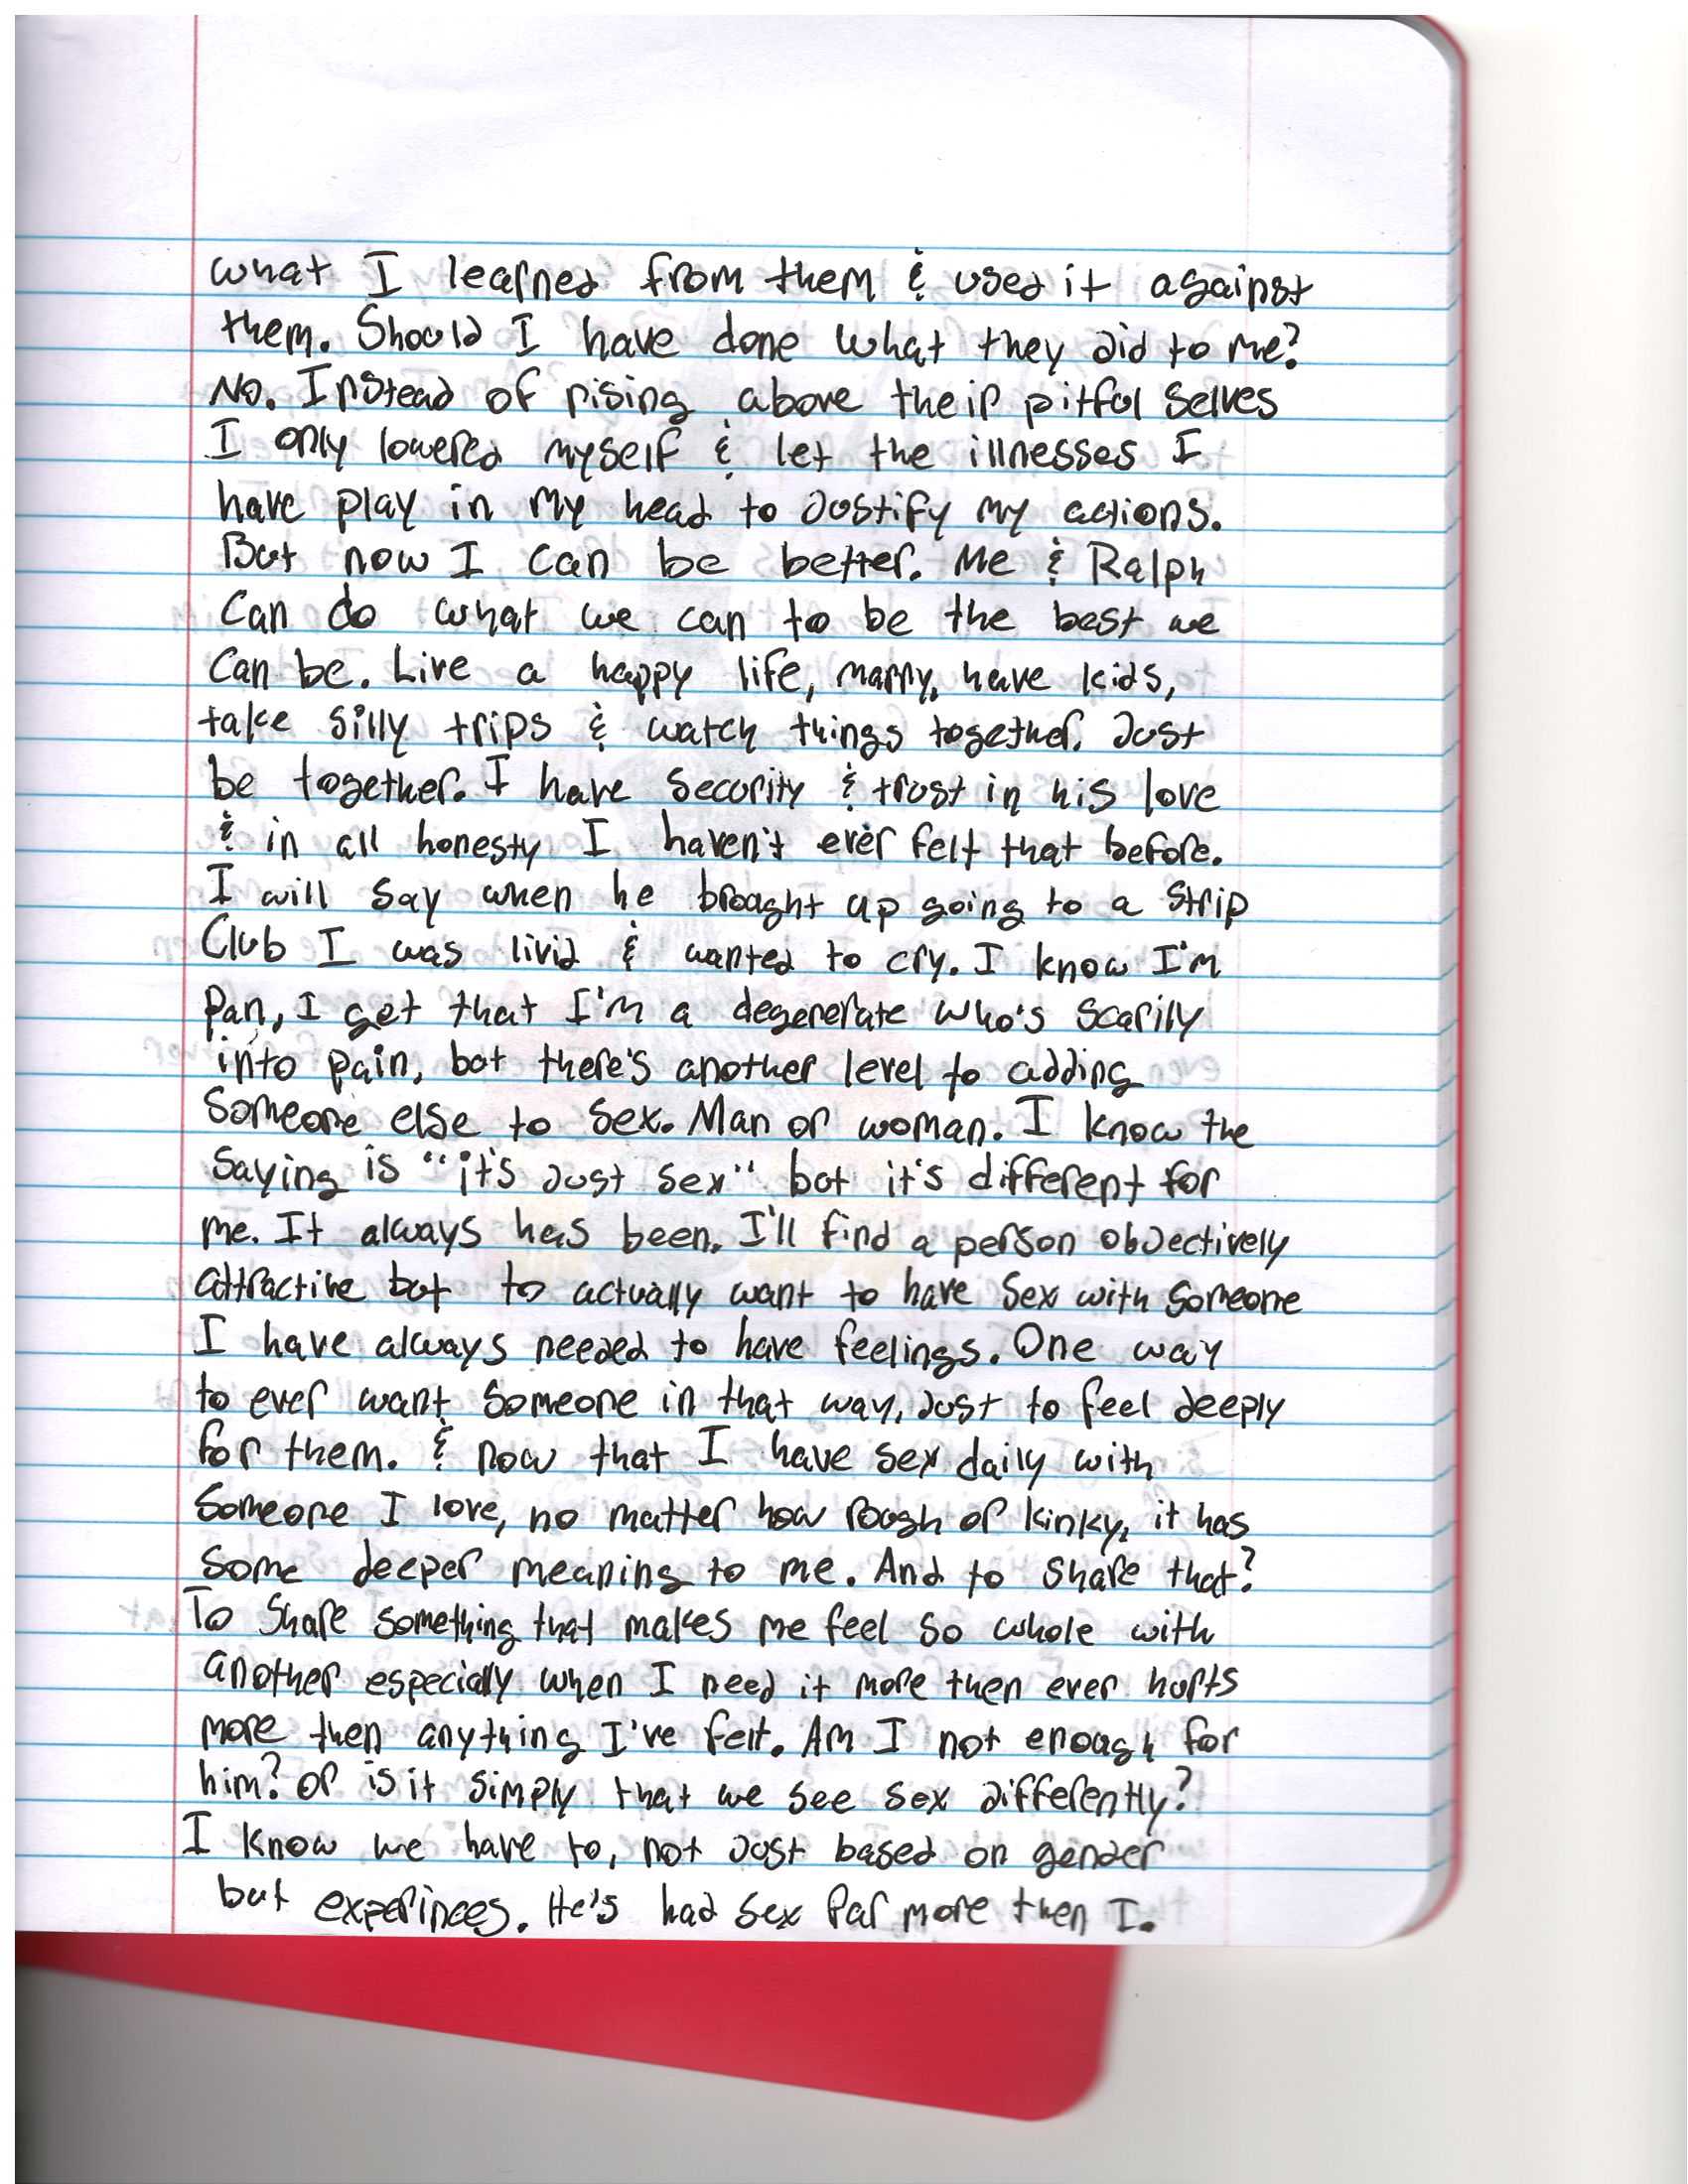 what I learned from them & used it against
them. Should I have done what they did to me?
No. Instead of rising above their pitful selves
I only lowered myself & let the illnesses I
have play in my head to Justify my actions.
But now I can be better. Me & Ralph
can do what we can to be the best we
can be. Live a happy life, marry, have kids,
take silly trips & watch things together. Just
be together. I have security & trust in his love
& in all honesty I haven't ever felt that before.
I will say when he brought up going to a strip
club I was livid & wanted to cry. I know I'm
Pan, I get that I'm a degenerate who's scarily
into pain, but there's another level to adding
someone else to sex. Man or woman. I know the
saying is "it's Just sex" but it's different for
me. It always has been. I'll find a person obJectively
attractive but to actually want to have sex with someone
I have always needed to have feelings. One way
to ever want someone in that way, Just to feel deeply
for them. & now that I have sex daily with
someone I love, no matter how rough or kinky, it has
some deeper meaning to me. And to share that?
To share something that makes me feel so whole with
another especially when I need it more then ever hurts
more then anything I've felt. Am I not enough for
him? or is it simply that we see sex differently?
I know we have to, not Just based on gender
but experinces. He's had sex far more then I.